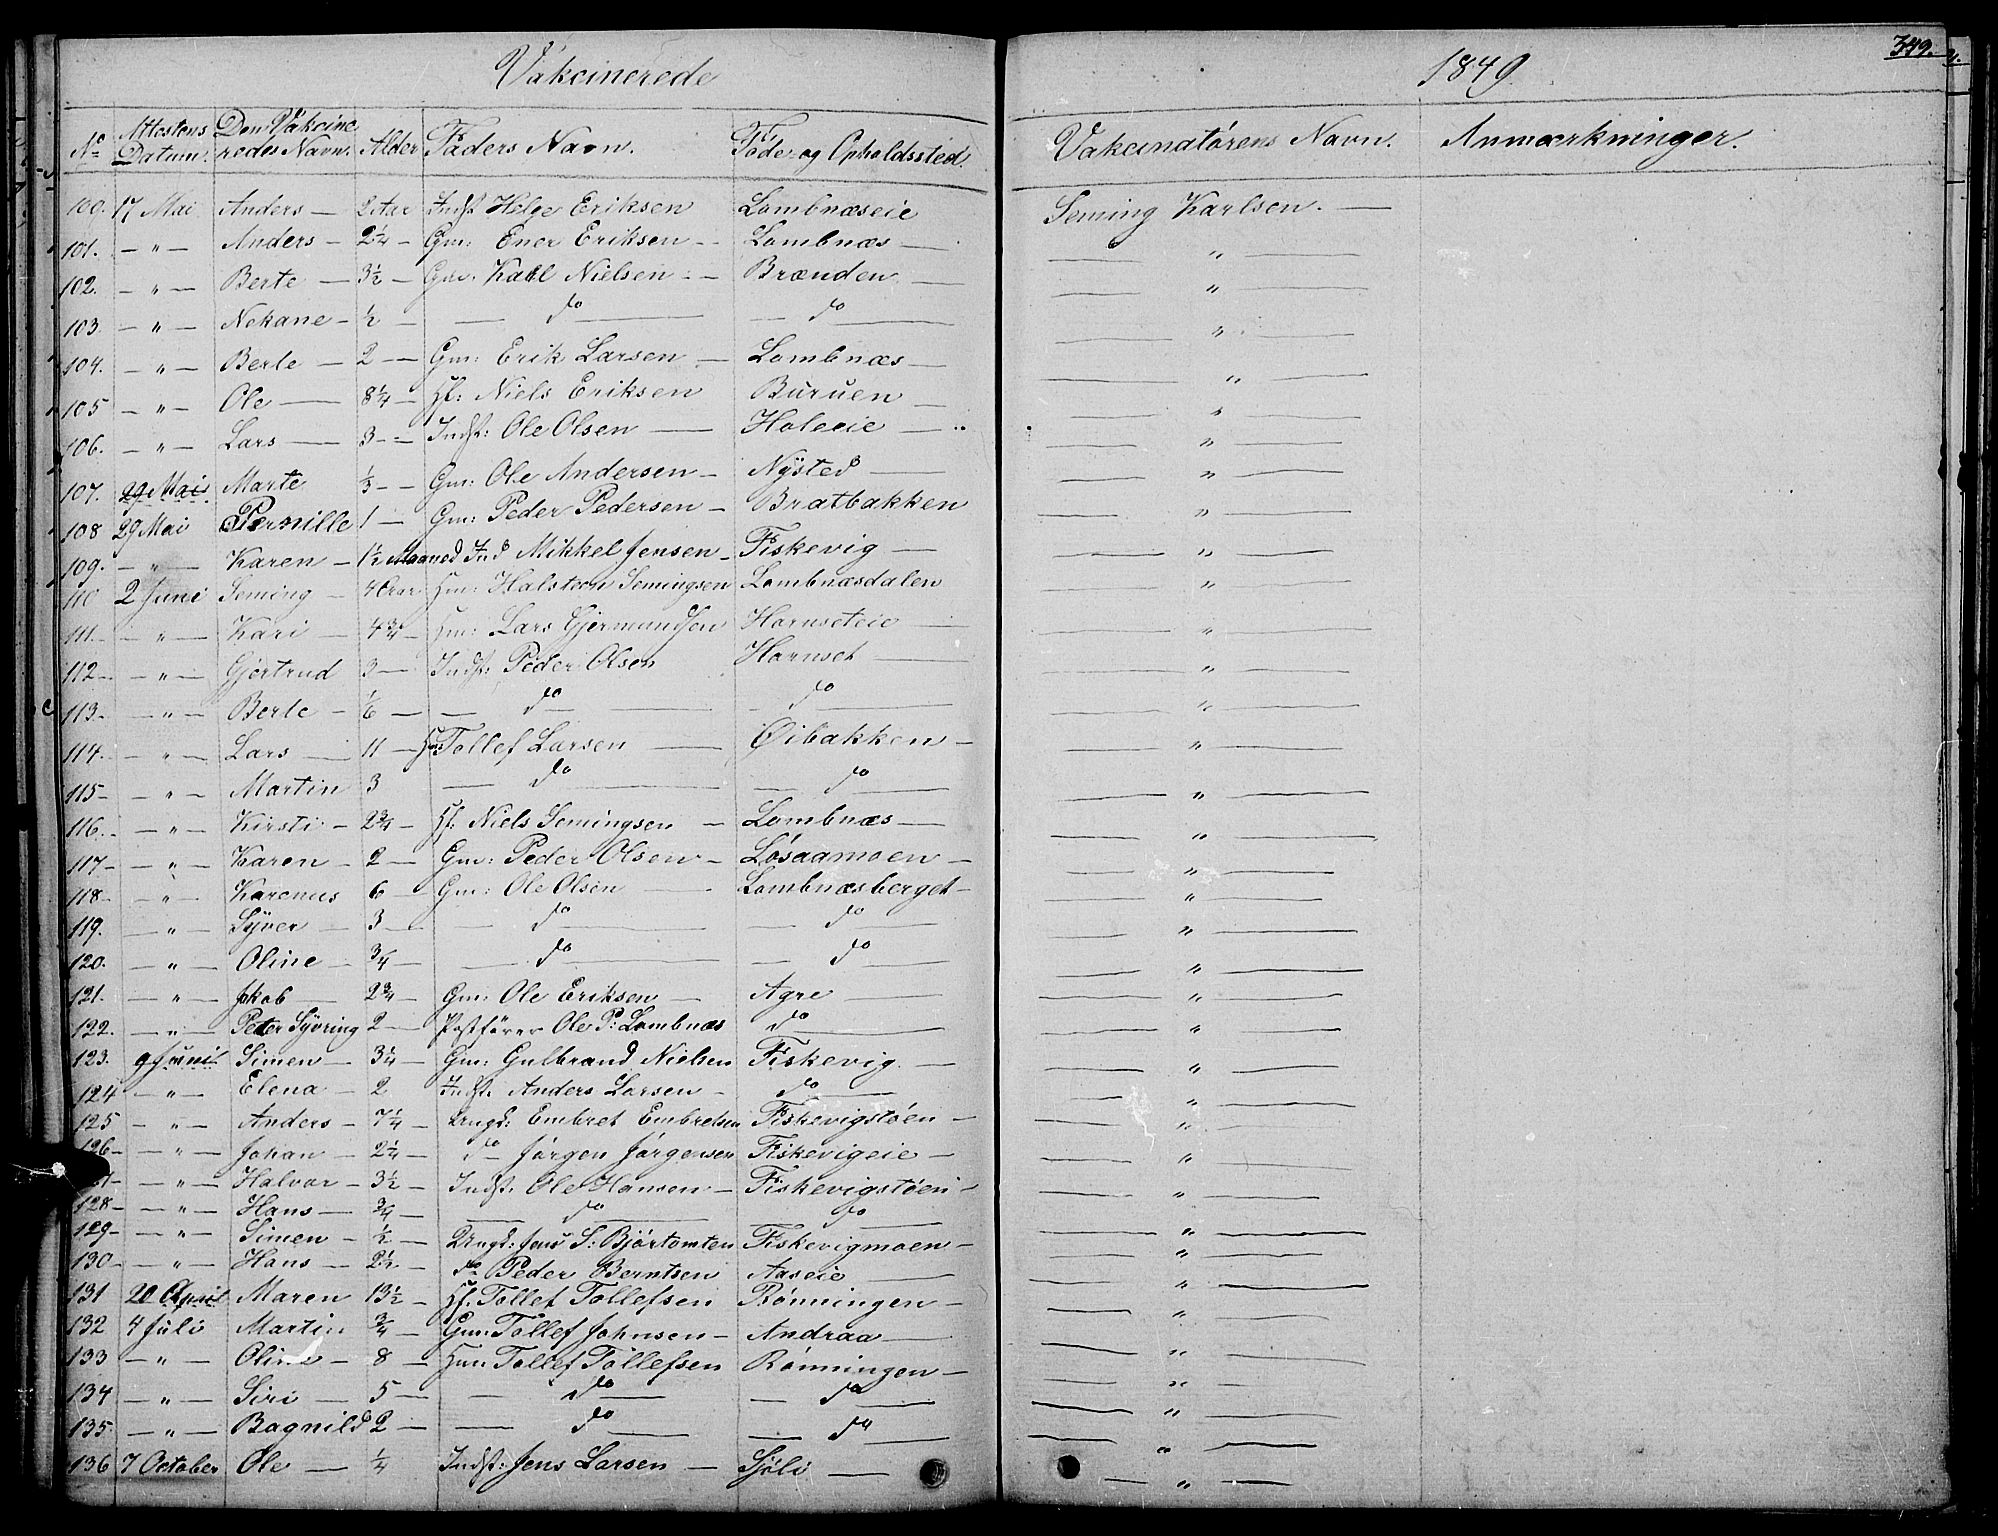 Vakcinerede
1849
349.
No Attestens Datum. Den Vakcineredes Navn. Alder Faders Navn. Føde- og Opholdssted. Vakcinatørens Navn. Anmærkninger.
100. 17 Mai Anders — 2 Aar Indst Helge Eriksen Lombnæseie Seming Karlsen. —
101. — " — Anders — 2 1/4 — Gm: Ener Eriksen — Lombnæs — — " —
102. — " — Berte — 3 1/2 — Gm: Karl Nielsen — Brænden — — " —
103. — " — Nekane — 1/2 — — do — — do — — " —
104. — " — Berte — 2 — Gm: Erik Larsen — Lombnæs — — " —
105 — " — Ole — 8 1/4 — Hf: Niels Eriksen Buruen — — " —
106. — " — Lars — 3 — Indst: Ole Olsen — Holeeie — — " —
107. 29 Mai. Marte 1/3 — Gm: Ole Andersen — Nysted — — " —
108 29 Mai Pernille 1 — Gm: Peder Pedersen — Bratbakken — " —
109. — " — Karen — 1 1/2 Maaned Ind Mikkel Jensen — Fiskevig — — " —
110 2 Juni Seming — 4 Aar Hm: Halsten Semingsen Lombnæsdalen — " —
111. — " — Kari — 4 3/4 — Hm: Lars Gjermundsen Harnseteie — — " —
112 — " — Gjertrud 3 — Indst: Peder Olsen Harnset — — " —
113. — " — Berte — 1/6 — — do — — do — — " —
114. — " — Lars — 11 — Hm: Tollef Larsen — Øibakken — — " —
115 — " — Martin 3 — do — — do — — " —
116. — " — Kirsti — 2 3/4 — Hf: Niels Semingsen — Lombnæs — — " —
117 — " — Karen — 2 — Gm: Peder Olsen — Løsaamoen — — " —
118 — " — Karenus 6 — Gm: Ole Olsen — Lombnæsberget — — " —
119. — " — Syver — 3 — — do — — do — — " —
120. — " — Oline — 3/4 — — do — — do — — " —
121. — " — Jakob — 2 3/4 — Gm: Ole Eriksen — Agre — — " —
122. — " — Peter Syvring 2 — Postfører Ole P: Lombnæs do — — " —
123. 9 Juni Simen — 3 1/4 — Gm: Gulbrand Nielsen Fiskevig. — — " —
124 — " — Elena — 2 Indst: Anders Larsen — do — — " —
125 — " — Anders — 7 1/4 — Ungk: Embret Embretsen Fiskevigstøen — — " —
126 — " — Johan — 2 1/4 — do Jørgen Jørgensen Fiskevigeie — — " —
— " — Halvor — 3 1/2 — Indst: Ole Hansen — Fiskevigstøen — — " —
128 — " — Hans — 3/4 — — do — do — — " —
129 — " — Simen — 1/2 — Ungk: Jens S: Bjørtomten Fiskevigmoen — — " —
130 — " — Hans — 2 1/2 — do Peder Berntsen Aaseie — — " —
131 20 April Maren 13 1/2 — Hf: Tollef Tollefsen Rønningen — — " —
132 4 Juli Martin 3/4 — Gm: Tollef Johnsen — Andraa — — " —
133 — " — Oline — 8 — Hm: Tollef Tollefsen Rønningen — — " —
134 — " — Siri — 5 — — do — — do — — " —
135 — " — Bagnild 2 — — do — — do — — " —
136 7 October Ole — 1/4 Indst: Jens Larsen — Sjøli — — " —